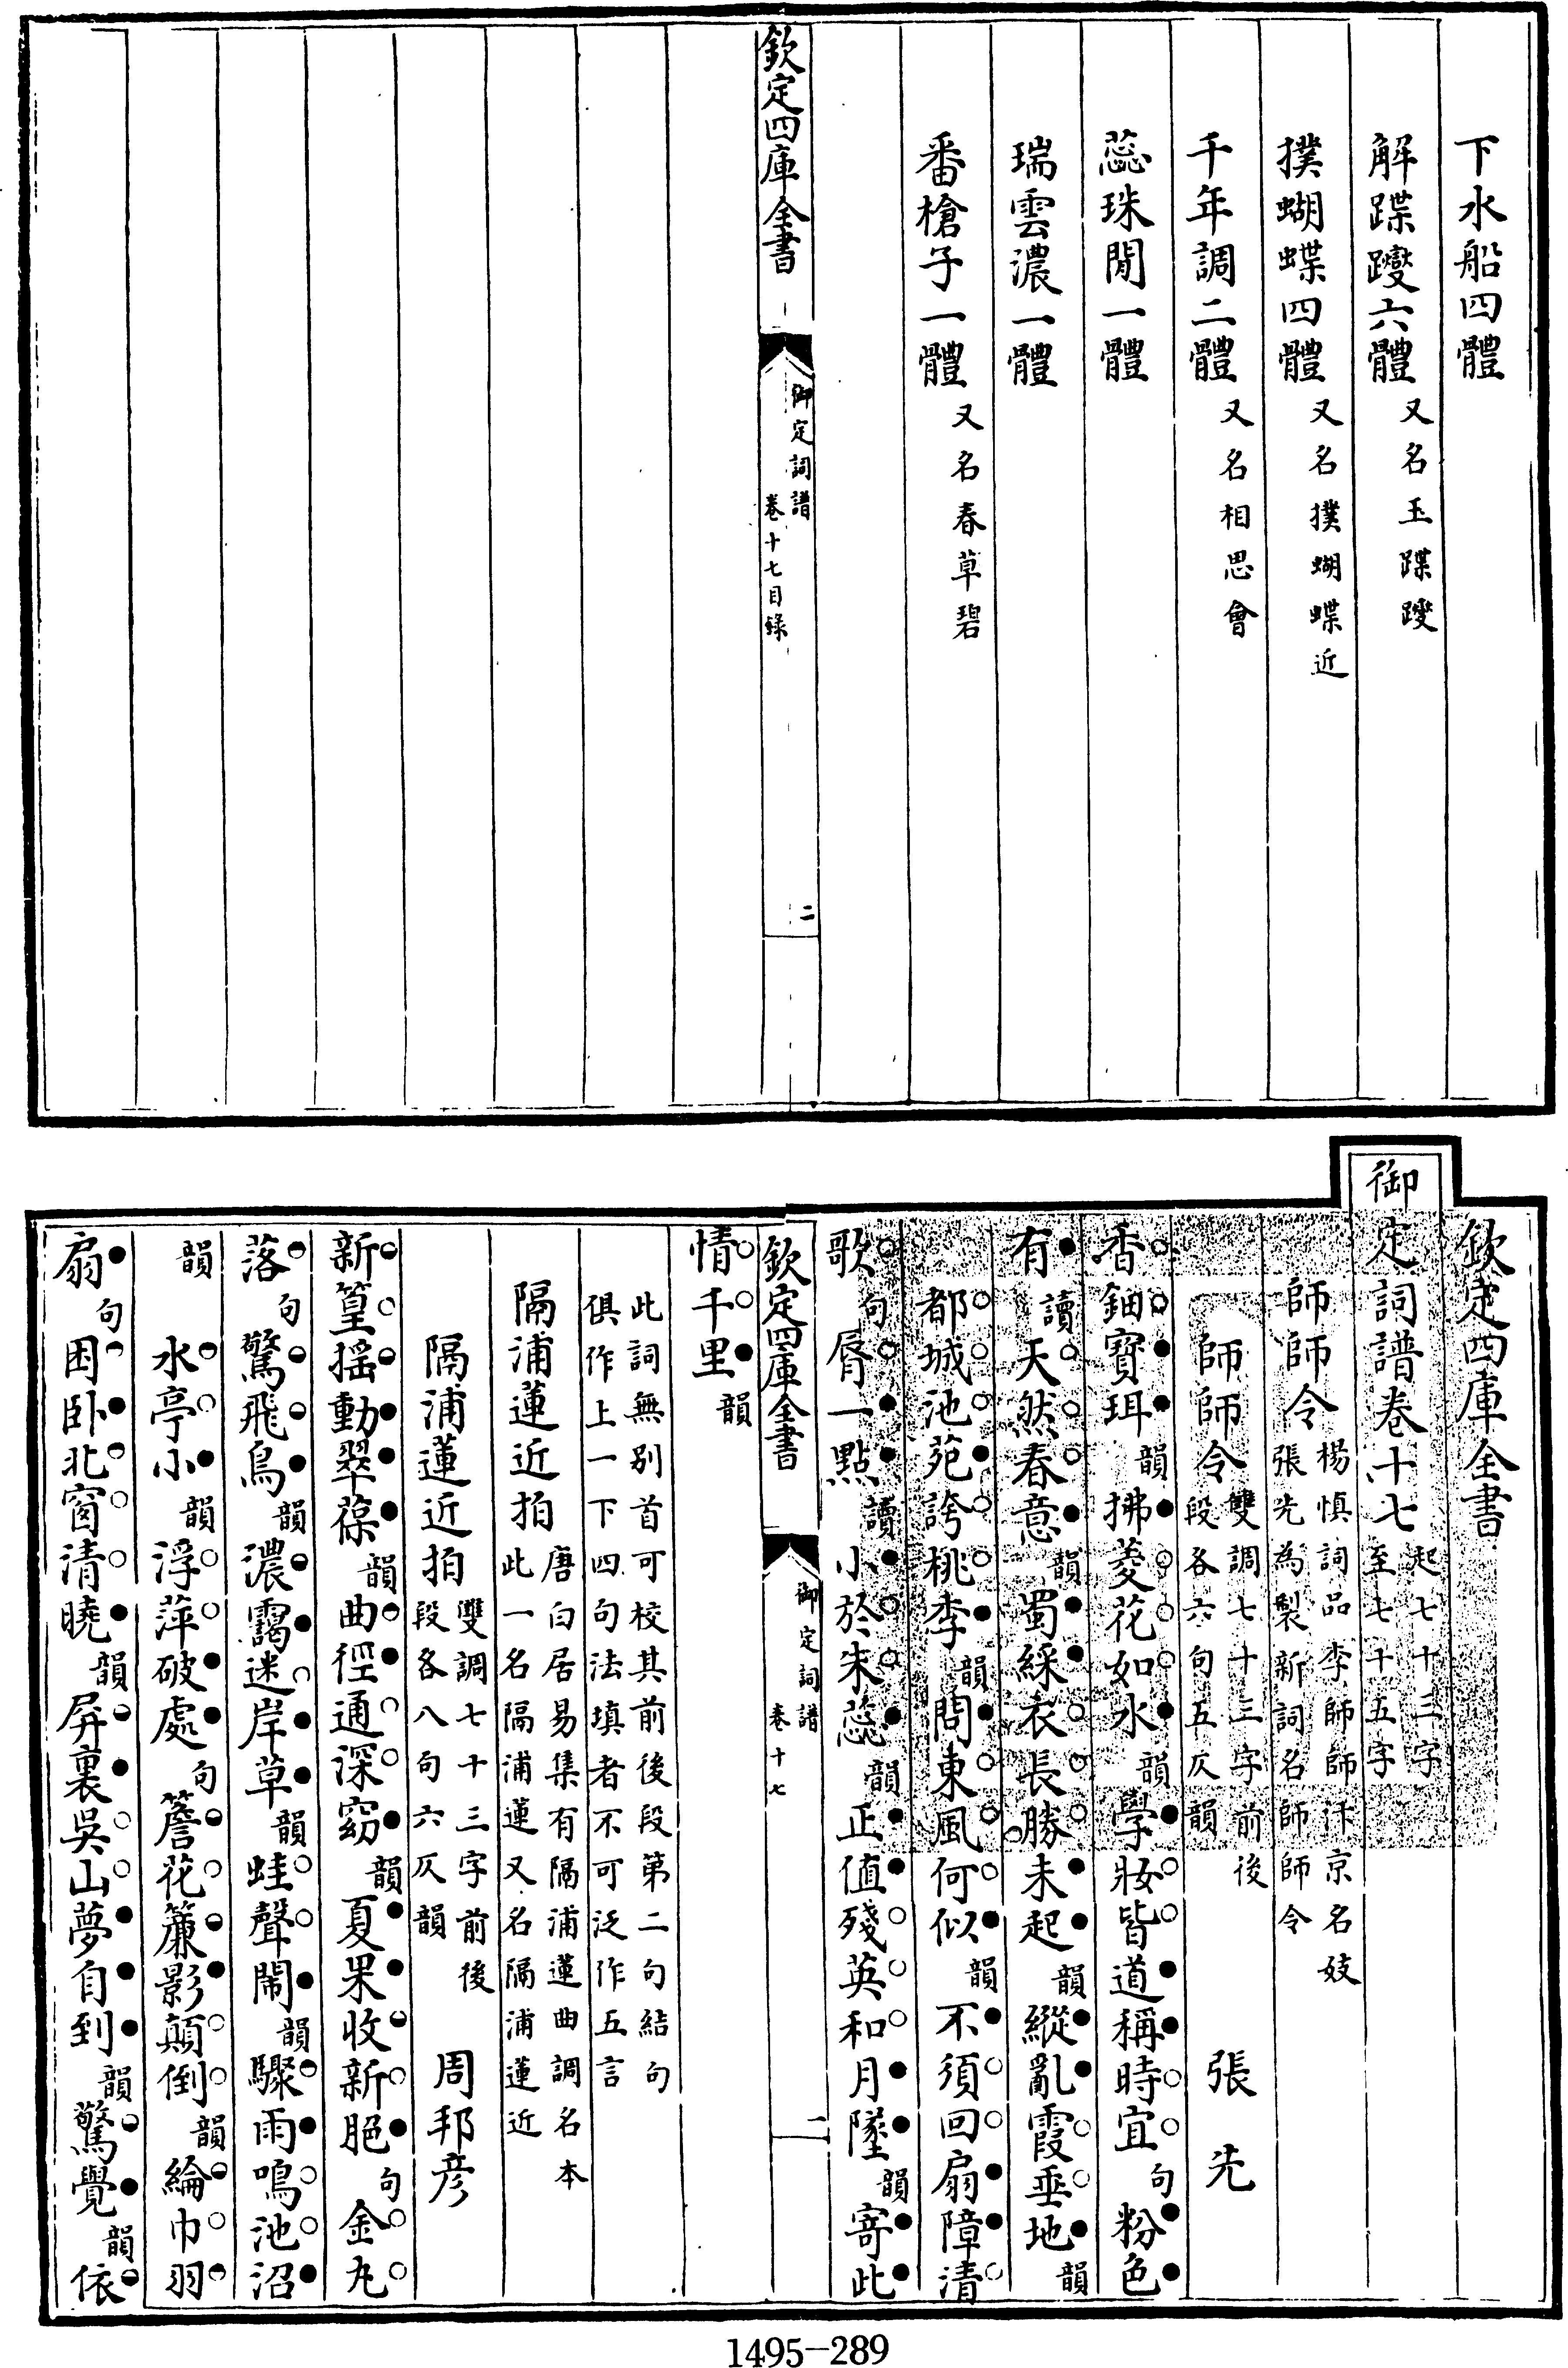 下水船四體
解蹀躞六體又名玉蹀躞
撲蝴蝶四體又名撲蝴蝶近
千年調二體又名相思會
蕊珠閒一體
瑞雲濃一體
番槍子一體又名春草碧
欽定四庫全書
御定詞譜
卷十七目錄
二
欽定四庫全書
御定詞譜卷十七起七十三字
至七十五字
師師令楊慎詞品李師師汴京名妓
張先為製新詞名師師令
師師令雙調七十三字前後
段各六句五仄韻
張先
香鈿寶珥韻拂菱花如水韻學妝皆道稱時宜句粉色
有讀天然春意韻蜀綵衣長勝未起韻縱亂霞垂地韻
都城池苑誇桃李韻問東風何似韻不須回扇障清
歌句脣一點讀小於朱蕊韻正值殘英和月墜韻寄此
欽定四庫全書
御定詞譜
卷十七
一
情千里韻
此詞無别首可校其前後段第二句結句
俱作上一下四句法填者不可泛作五言
隔浦蓮近拍唐白居易集有隔浦蓮曲調名本
此一名隔浦蓮又名隔浦蓮近
隔浦蓮近拍雙調七十三字前後
段各八句六仄韻
周邦彦
新篁揺動翠葆韻曲徑通深窈韻夏果收新脆句金丸
落句驚飛鳥韻濃靄迷岸草韻蛙聲鬧韻驟雨鳴池沼
韻水亭小韻浮萍破處句簷花簾影顛倒韻綸巾羽
扇句困卧北窗清曉韻屏裏吳山夢自到韻驚覺韻依
1495-289